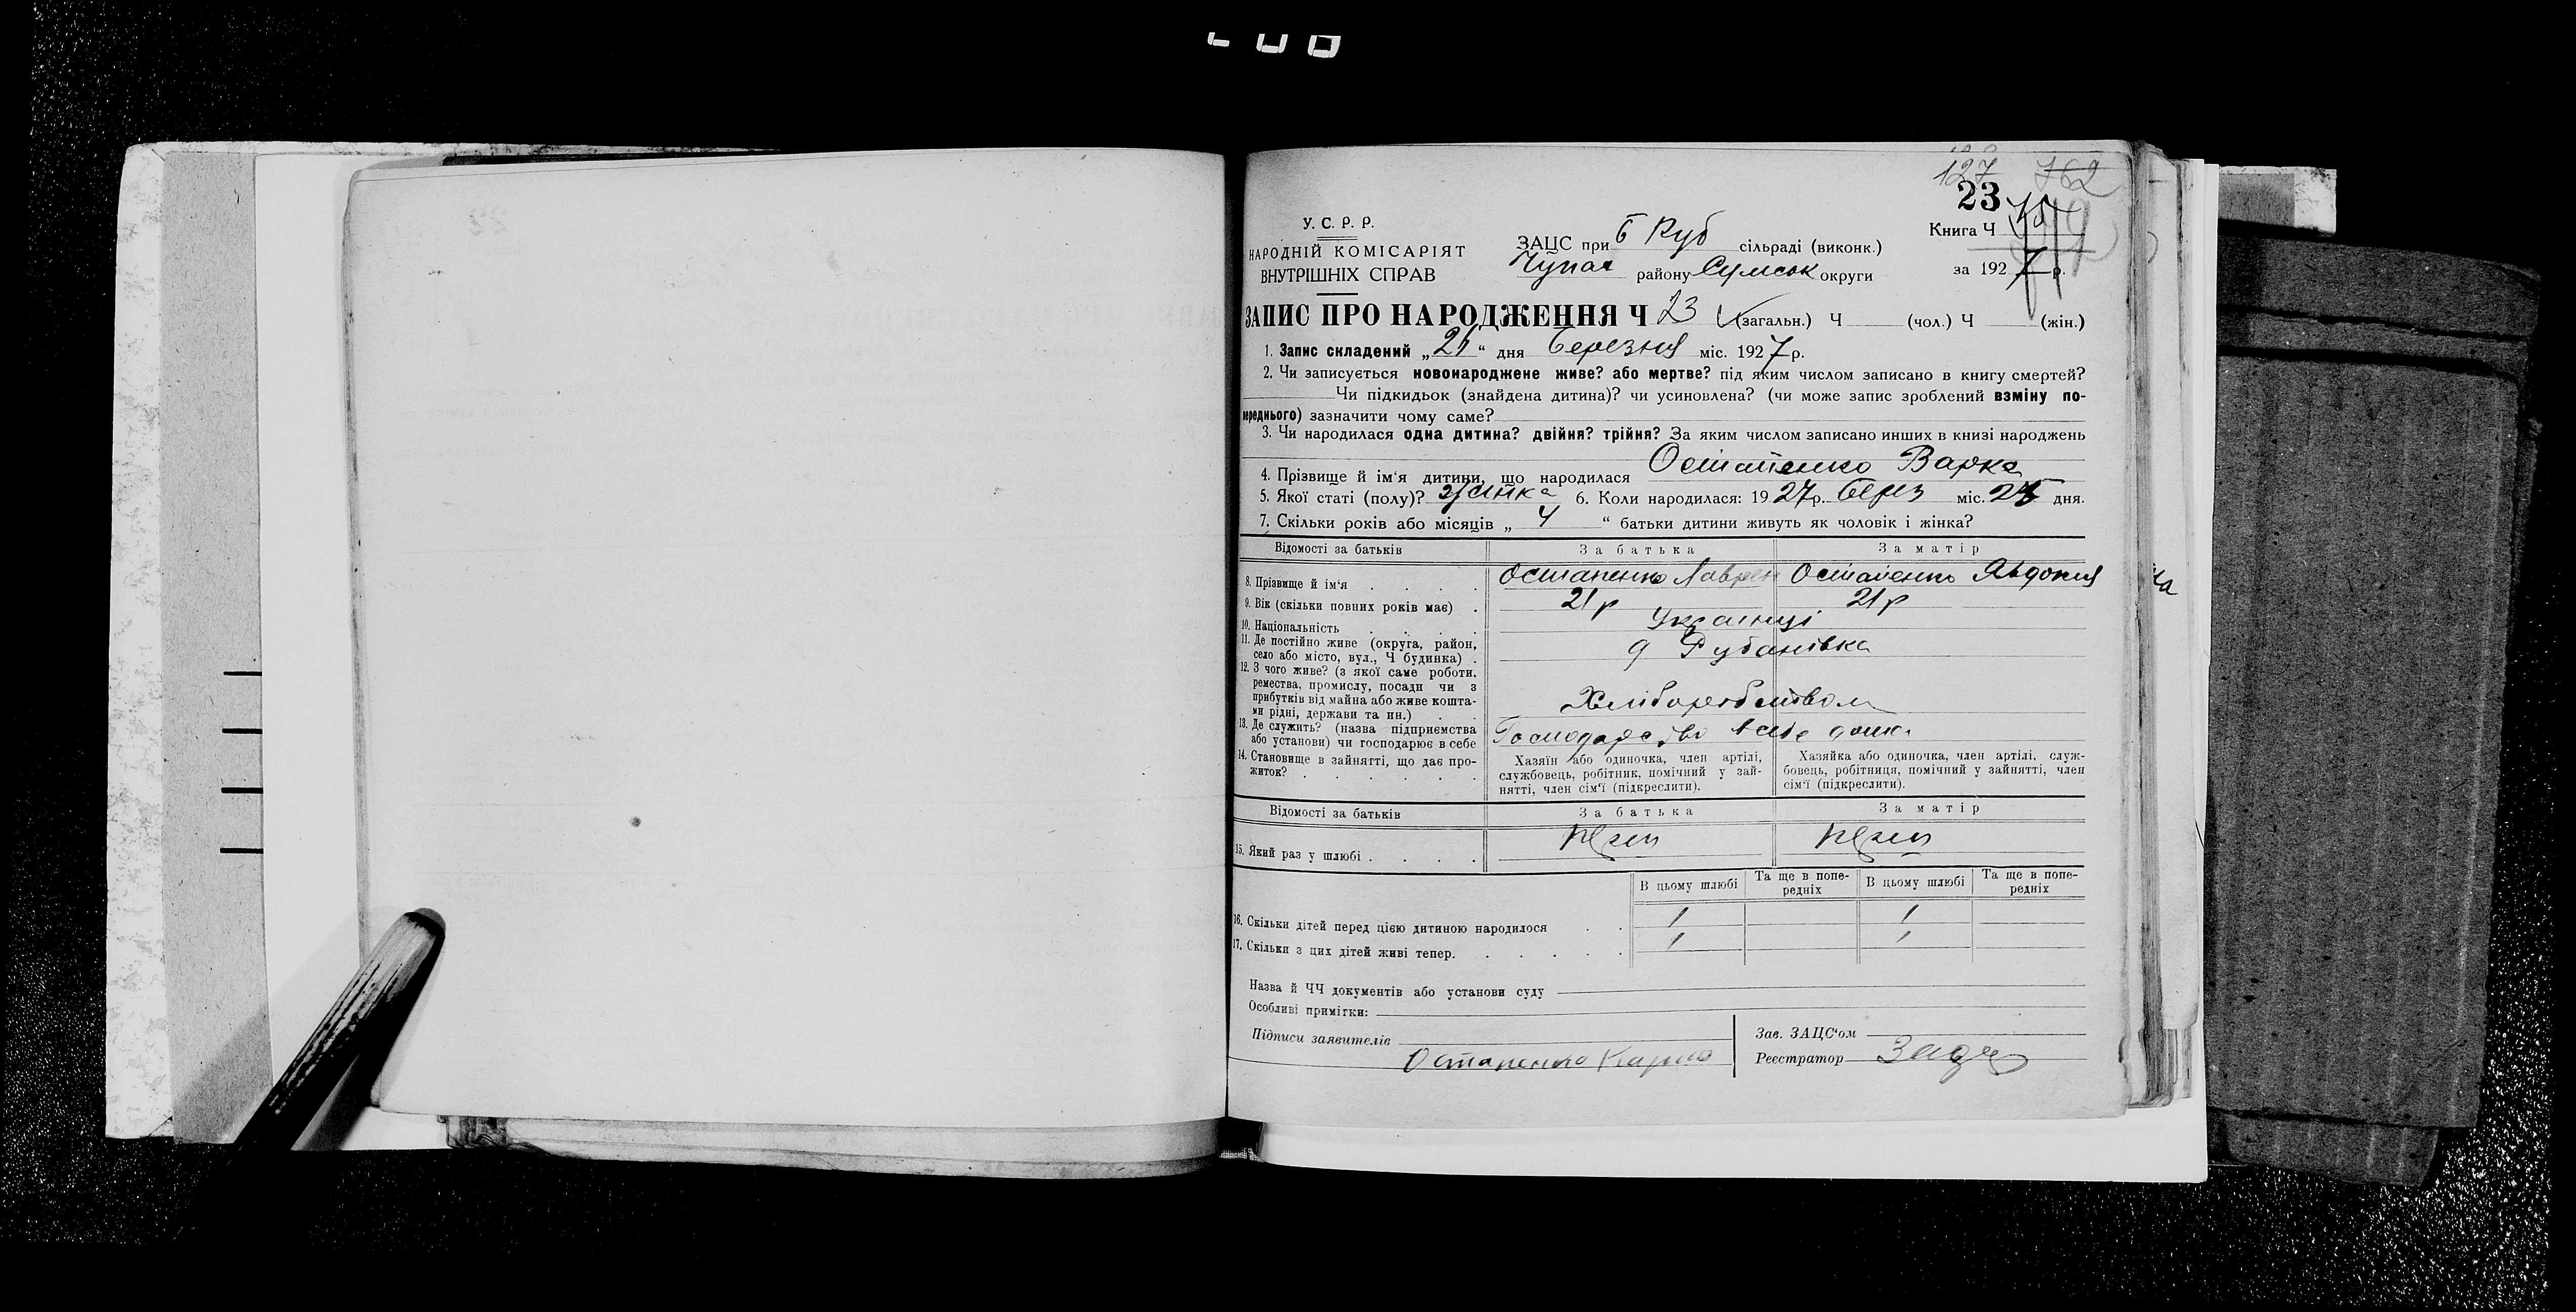 127 762
23
У. С. Р. Р.
НАРОДНІЙ КОМІСАРІЯТ
ВНУТРІШНІХ СПРАВ
ЗАЦС при Б Руб сільраді (виконк.)
Чупах району Сумськ округи
Книга Ч
за 1927 р.
ЗАПИС ПРО НАРОДЖЕННЯ Ч 23 (загальн.) Ч (чол.) Ч (жін.)
1. Запис складений „26“ дня березня міс. 1927 р.
2. Чи записується новонароджене живе? або мертве? під яким числом записано в книгу смертей?
Чи підкидьок (знайдена дитина)? чи усиновлена? (чи може запис зроблений взміну по-
переднього) зазначити чому саме?
3. Чи народилася одна дитина? двійня? трійня? За яким числом записано инших в книзі народжень
4. Прізвище й ім‘я дитини, що народилася Остапенко Варка
5. Якої статі (полу)? жінка 6. Коли народилася: 1927 р. берез міс. дня.
7. Скільки років або місяців „ 4 “ батьки дитини живуть як чоловік і жінка?
Відомості за батьків За батька За матір
8. Прізвище й ім‘я . . . . Остапенко Лаврен Остапенко Явдокия
9. Вік (скільки повних років має) . 21 р 21 р
10. Національність . . . . Українці
11. Де постійно живе (округа, район,
село або місто, вул., Ч будинка) . Рубанівка
12. З чого живе? (з якої саме роботи,
ремества, промислу, посади чи з
прибутків від майна або живе кошта-
ми рідні, держави та ин.) . . Хліборобством
13. Де служить? (назва підприємства
або установи) чи господарює в себе Господарство в себе дома
14. Становище в зайнятті, що дає про-
житок? . . . . . . .
Хазяїн або одиночка, член артілі,
службовець, робітник, помічний у зай-
нятті, член сім‘ї (підкреслити).
Хазяйка або одиночка, член артілі, служ-
бовець, робітниця, помічний у зайнятті, член
сім‘ї (підкреслити).
Відомості за батьків За батька За матір
15. Який раз у шлюбі . . . .
В цьому шлюбі Та ще в попе-
редніх В цьому шлюбі Та ще в попе-
редніх
16. Скільки дітей перед цією дитиною народилося . . 1 1
17. Скільки з цих дітей живі тепер. . . . . . 1 1
Назва й ЧЧ документів або установи суду
Особливі примітки:
Підписи заявителів
Остапенко
Зав. ЗАЦС‘ом
Реєстратор